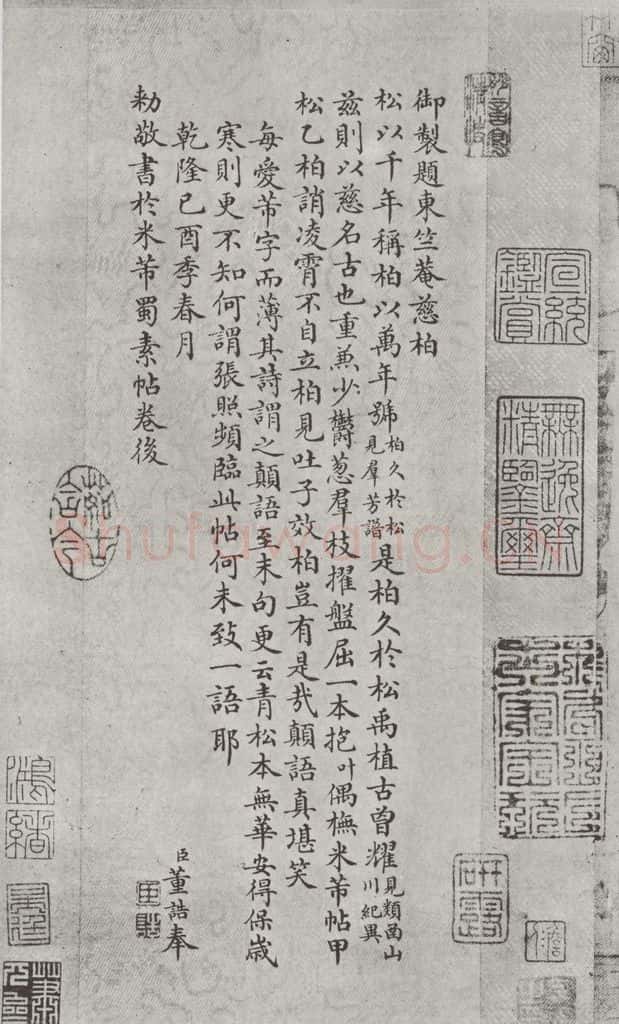 御製題東竺菴慈柏
松以千年稱柏以萬年號柏久於松見羣芳譜是柏久於松禹植古曽耀見類函山川紀異
兹則以慈名古也重兼少欝葱羣枝擢盤屈一本抱叶偶橅米芾帖甲
松乙柏誚凌霄不自立柏見吐子效柏豈有是㢤顛語真堪笑
每愛芾字而薄其詩謂之顛語至末句更云青松本無華安得保歳
寒則更不知何謂張照頻臨此帖何未致一語耶
乾隆己酉季春月
臣董誥奉
勅敬書於米芾蜀素帖卷後
宣統鑑賞
無逸齋精鑒璽
研露
shufawang.cn